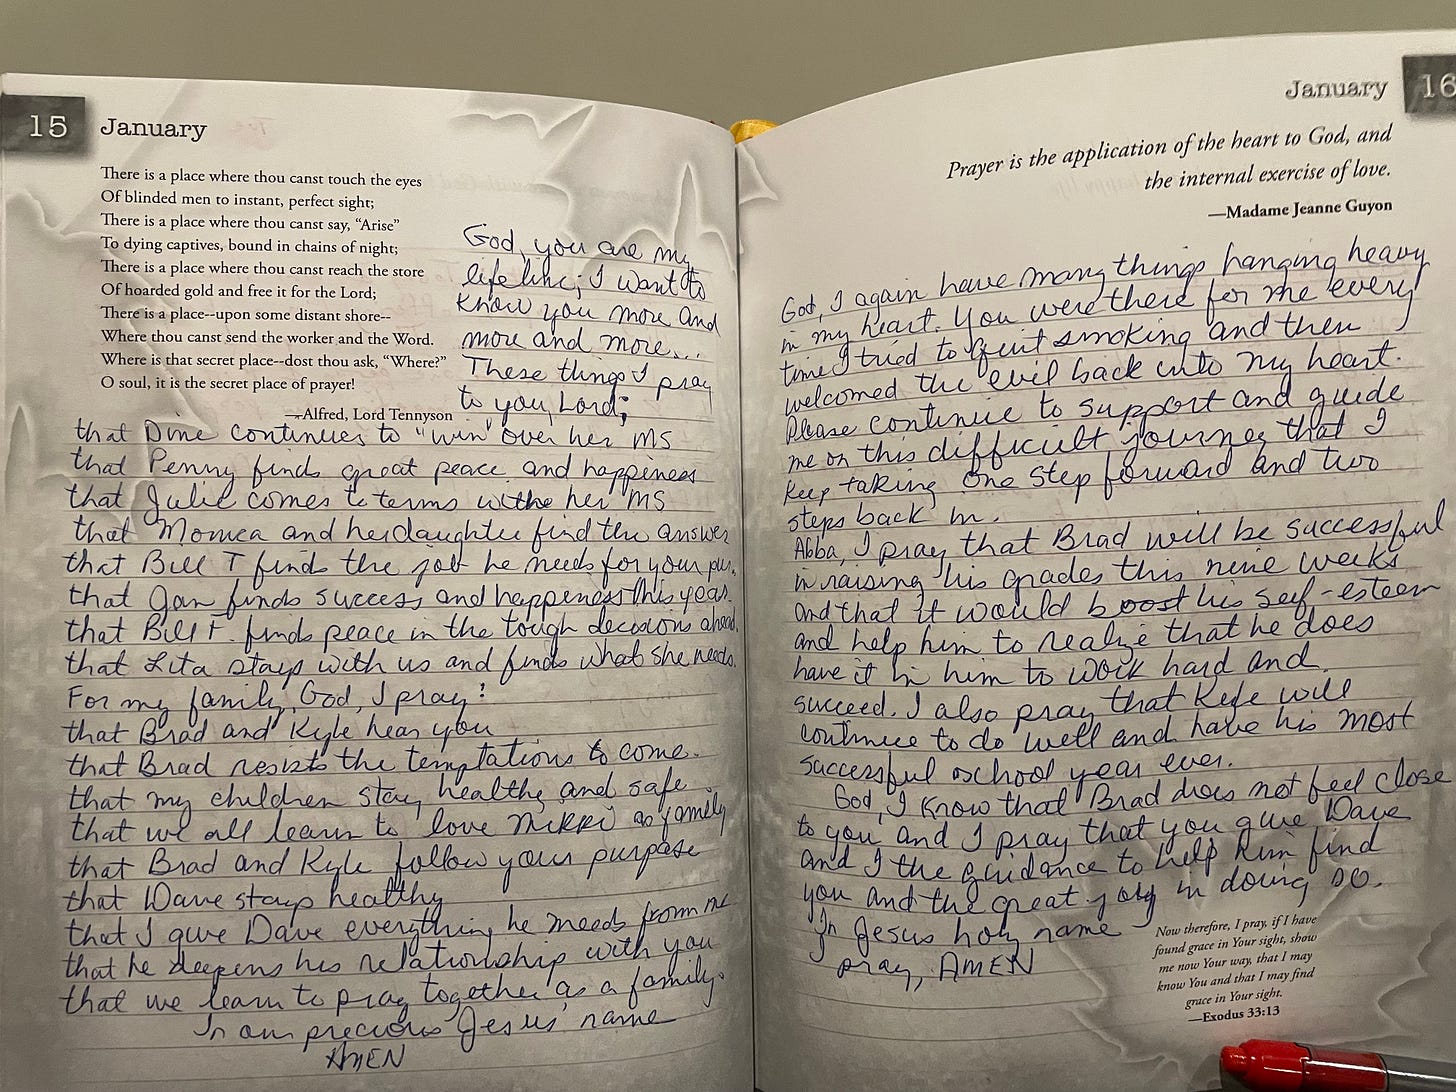 15 January
There is a place where thou canst touch the eyes
Of blinded men to instant, perfect sight;
There is a place where thou canst say, “Arise”
To dying captives, bound in chains of night;
There is a place where thou canst reach the store
Of hoarded gold and free it for the Lord;
There is a place--upon some distant shore--
Where thou canst send the worker and the Word.
Where is that secret place--dost thou ask, “Where?”
O soul, it is the secret place of prayer!
—Alfred, Lord Tennyson
God, you are my
life line; I want to
know you more and
more and more...
These things I pray
to you, Lord;
that Dine continues to "win" over her MS
that Penny finds great peace and happiness
that Julie comes to terms withe her MS
that Monica and her daughter find the answer
that Bill T finds the job he needs for your pur.
that Jan finds success and happiness this year.
that Bill F. finds peace in the tough decisions ahead.
that Lita stays with us and finds what she needs.
For my family, God, I pray:
that Brad and Kyle hear you
that Brad resists the temptations to come.
that my children stay healthy and safe
that we all learn to love Nikki as family
that Brad and Kyle follow your purpose
that Dave stays healthy
that I give Dave everything he needs from me
that he deepens his relationship with you
that we learn to pray together as a family.
In our precious Jesus' name
AMEN
January 16
Prayer is the application of the heart to God, and
the internal exercise of love.
—Madame Jeanne Guyon
God, I again have many things hanging heavy
in my heart. You were there for me every
time I tried to quit smoking and then
welcomed the evil back into my heart.
Please continue to support and guide
me on this difficult journey that I
keep taking one step forward and two
steps back in.
Abba, I pray that Brad will be successful
in raising his grades this nine weeks
and that it would boost his self-esteem
and help him to realize that he does
have it in him to work hard and
succeed. I also pray that Kyle will
continue to do well and have his most
successful school year ever.
God, I know that Brad does not feel close
to you and I pray that you give Dave
and I the guidance to help him find
you and the great joy in doing so.
In Jesus holy name
pray, AMEN
Now therefore, I pray, if I have
found grace in Your sight, show
me now Your way, that I may
know You and that I may find
grace in Your sight.
—Exodus 33:13